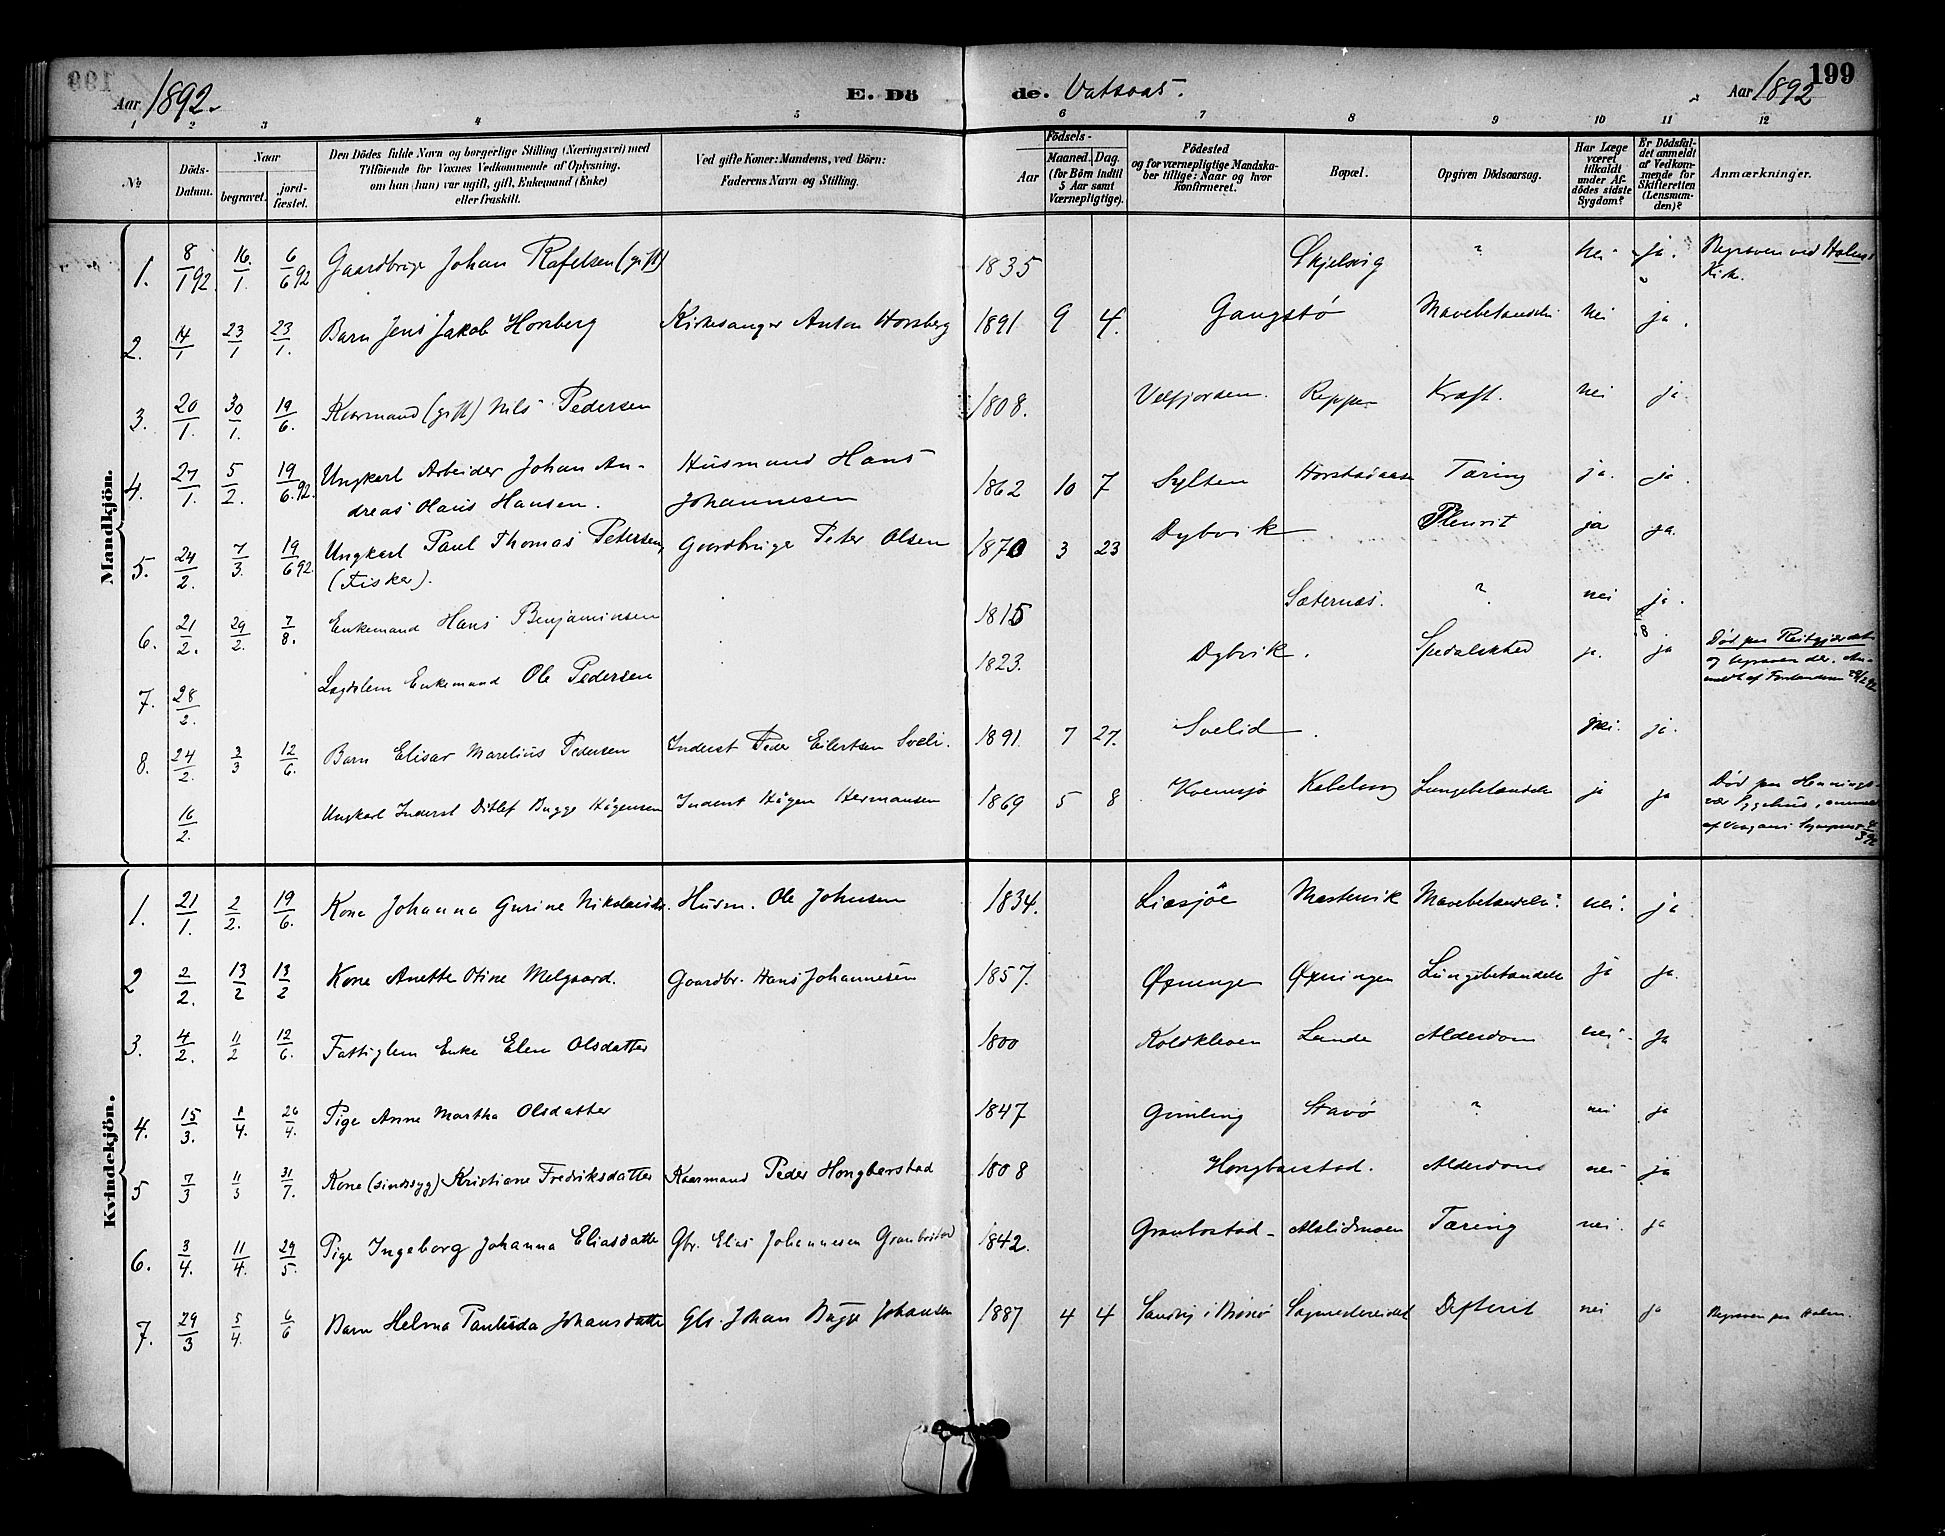 199
Aar 1892.
E. Dö de. Vatsaas.
Aar 1892
1 2 3 4 5 6 7 8 9 10 11 12
№
Döds-Datum.
Naar
begravet.
jordfæstet.
Den Dödes fulde Navn og borgerlige Stilling (Næringsvei) med
Tilföiende for Voxnes Vedkommende af Oplysning,
om han (hun) var ugift, gift, Enkemand (Enke)
eller fraskilt.
Ved gifte Koner: Mandens, ved Börn:
Faderens Navn og Stilling.
Födsels-
Aar
Maaned. Dag.
(for Börn indtil
5 Aar samt
Værnepligtige).
Födested
og for værnepligtige Mandska-
ber tillige: Naar og hvor
konfirmeret.
Bopæl.
Opgiven Dödsaarsag.
Har Læge
været
tilkaldt
under Af-
dödes sidste
Sygdom?
Er Dödsfal-
det anmeldt
af Vedkom-
mende for
Skifteretten
(Lensman-
den)?
Anmærkninger.
Mandkjön.
1. 8/1 92 16/1. 6/6 92 Gaardbrüge Johan Rafelsen (gift) 1835 Skjelsvig ? nei ja. Begraven ved Holms
Kirke.
2. 14/1 23/1 23/1. Barn Jens Jakob Horsberg Kirkesanger Anton Horsberg 1891 9 4. Gangstø Mavebetændelse nei ja.
3. 20/1. 30/1. 19/6. Kaarmand (gift) Nils Pedersen 1808. Velfjorden. Reppen Kræft. nei ja.
4. 27/1. 5/2. 19/6.92. Ungkarl Arbeider Johan An-
dreas Olaüs Hansen. Hüsmand Hans
Johannesen 1862 10 7 Sylten Horstadaase Tæring ja. ja.
5. 24/2. 7/3. 19/6 92. Ungkarl Paul Thomas Petersen,
(Fisker). Gaardbrüge Peter Olsen 1870 3 23 Dybvik Pleurit ja ja.
6. 21/2. 29/2. 7/8. Enkemand Hans Benjaminsen 1815 Sæternæs. ? nei ja.
7. 28/2. Lægdslem Enkemand Ole Pedersen 1823. Dybvik. Spedalskhed ja. ja Død paa Reitgjærdet
og begraven der. An-
meldt af
8. 24/2. 3/3 12/6. Barn Elisar Marelius Pedersen Inderst Peder Eilertsen Sveli. 1891 7 27. Svelid. nei. ja.
16/2. Ungkarl Inderst Ditlef Bugge Hågensen Inderst Hågen Hermansen 1869 5 8 Kvernsjø Lungebetændelse ja ja Død paa Hennings-
vær Sygehüs, anmeldt
Kvindekjön.
1. 21/1. 2/2. 19/6. Kone Johanna Gurine Nikolaisdt. Hüsm. Ole Johnsen 1834. Liasjøe Mastervik Mavebetændelse. nei. ja
2 2/2. 13/2 13/2 Kone Anette Otine Melgaard. Gaardbr. Hans Johannesen 1857. Øxningen Øxningen Lüngebetændelse ja ja.
3. 4/2. 11/2 12/6. Fattiglem Enke Elen Olsdatter 1800 Koldkleven Lande Alderdom nei. ja
4. 15/3. 8/4. 26/4. Pige Anne Martha Olsdatter 1847 Gimling Stavø ? nei ja
5 7/3 11/3 31/7. Kone (sindssyg) Kristiane Fredriksdatter Kaarmand Peder Hongbarstad 1808 Hongbarstad. Alderdom nei ja
6. 3/4. 11/4. 29/5. Pige Ingeborg Johanna Eliasdatter Gbr. Elias Johannesen Granbostad 1842. Granbostad Alslidmoen Tæring nei. ja
7. 29/3 5/4. 6/6 Barn Helma Paulusda Johansdatter Gbr. Johan Bugge Johansen 1887 4 4 Sandvig i Brønø Sagmestereidet Difterit nei ja Begraven paa Holm.